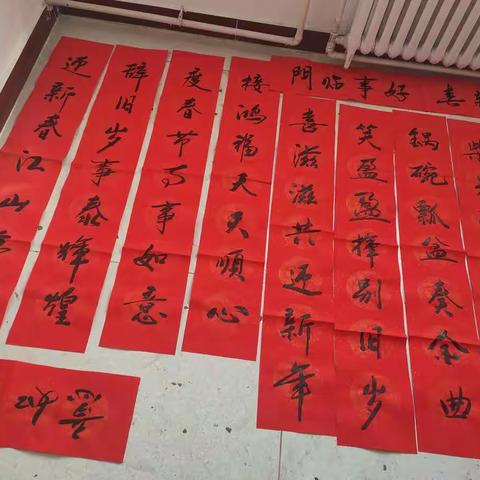 迎新春江山
辞旧岁事泰辉煌
度春节万事如意
接鸿福天天顺心
喜滋滋共迎新年
笑盈盈挥别旧岁
锅碗瓢盆奏金曲
柴
門临事好喜
如意